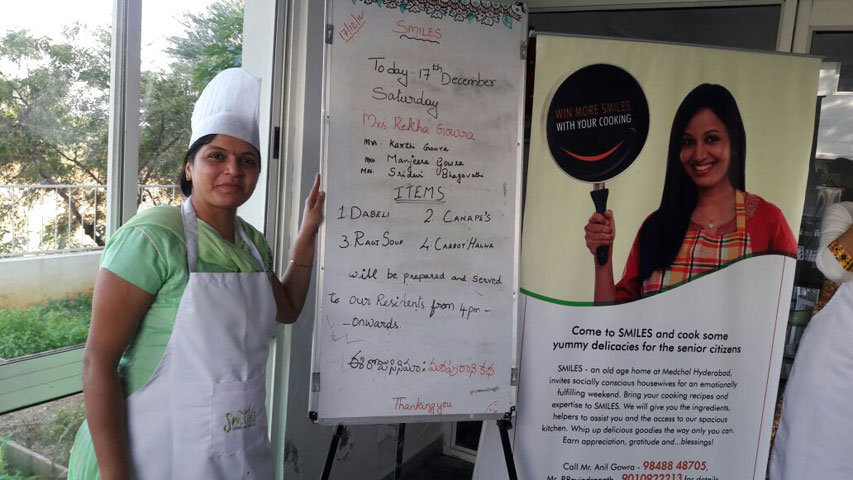 17/12/16
SMILES
Today 17th December
Saturday
Mrs Rekha Gowra
Mrs. Karthi Gowra
Mrs Manjeera Gowra
Mrs. Sridevi Bhagavathi
ITEMS
1 DABELI 2 CANAPE'S
3. RAGI SOUP 4 CARROT HALWA
will be prepared and served
to our Residents from 4pm -
- onwards.
ఈ రోజు సినిమా: మరపురాని కథ
Thanking you
WIN MORE SMILES
WITH YOUR COOKING
Come to SMILES and cook some
yummy delicacies for the senior citizens
SMILES - an old age home at Medchal Hyderabad,
invites socially conscious housewives for an emotionally
fulfilling weekend. Bring your cooking recipes and
expertise to SMILES. We will give you the ingredients,
helpers to assist you and the access to our spacious
kitchen. Whip up delicious goodies the way only you can.
Earn appreciation, gratitude and...blessings!
Call Mr. Anil Gowra - 98488 48705,
Mr. P.Ravindranath - 9010922213 for details
Smiles